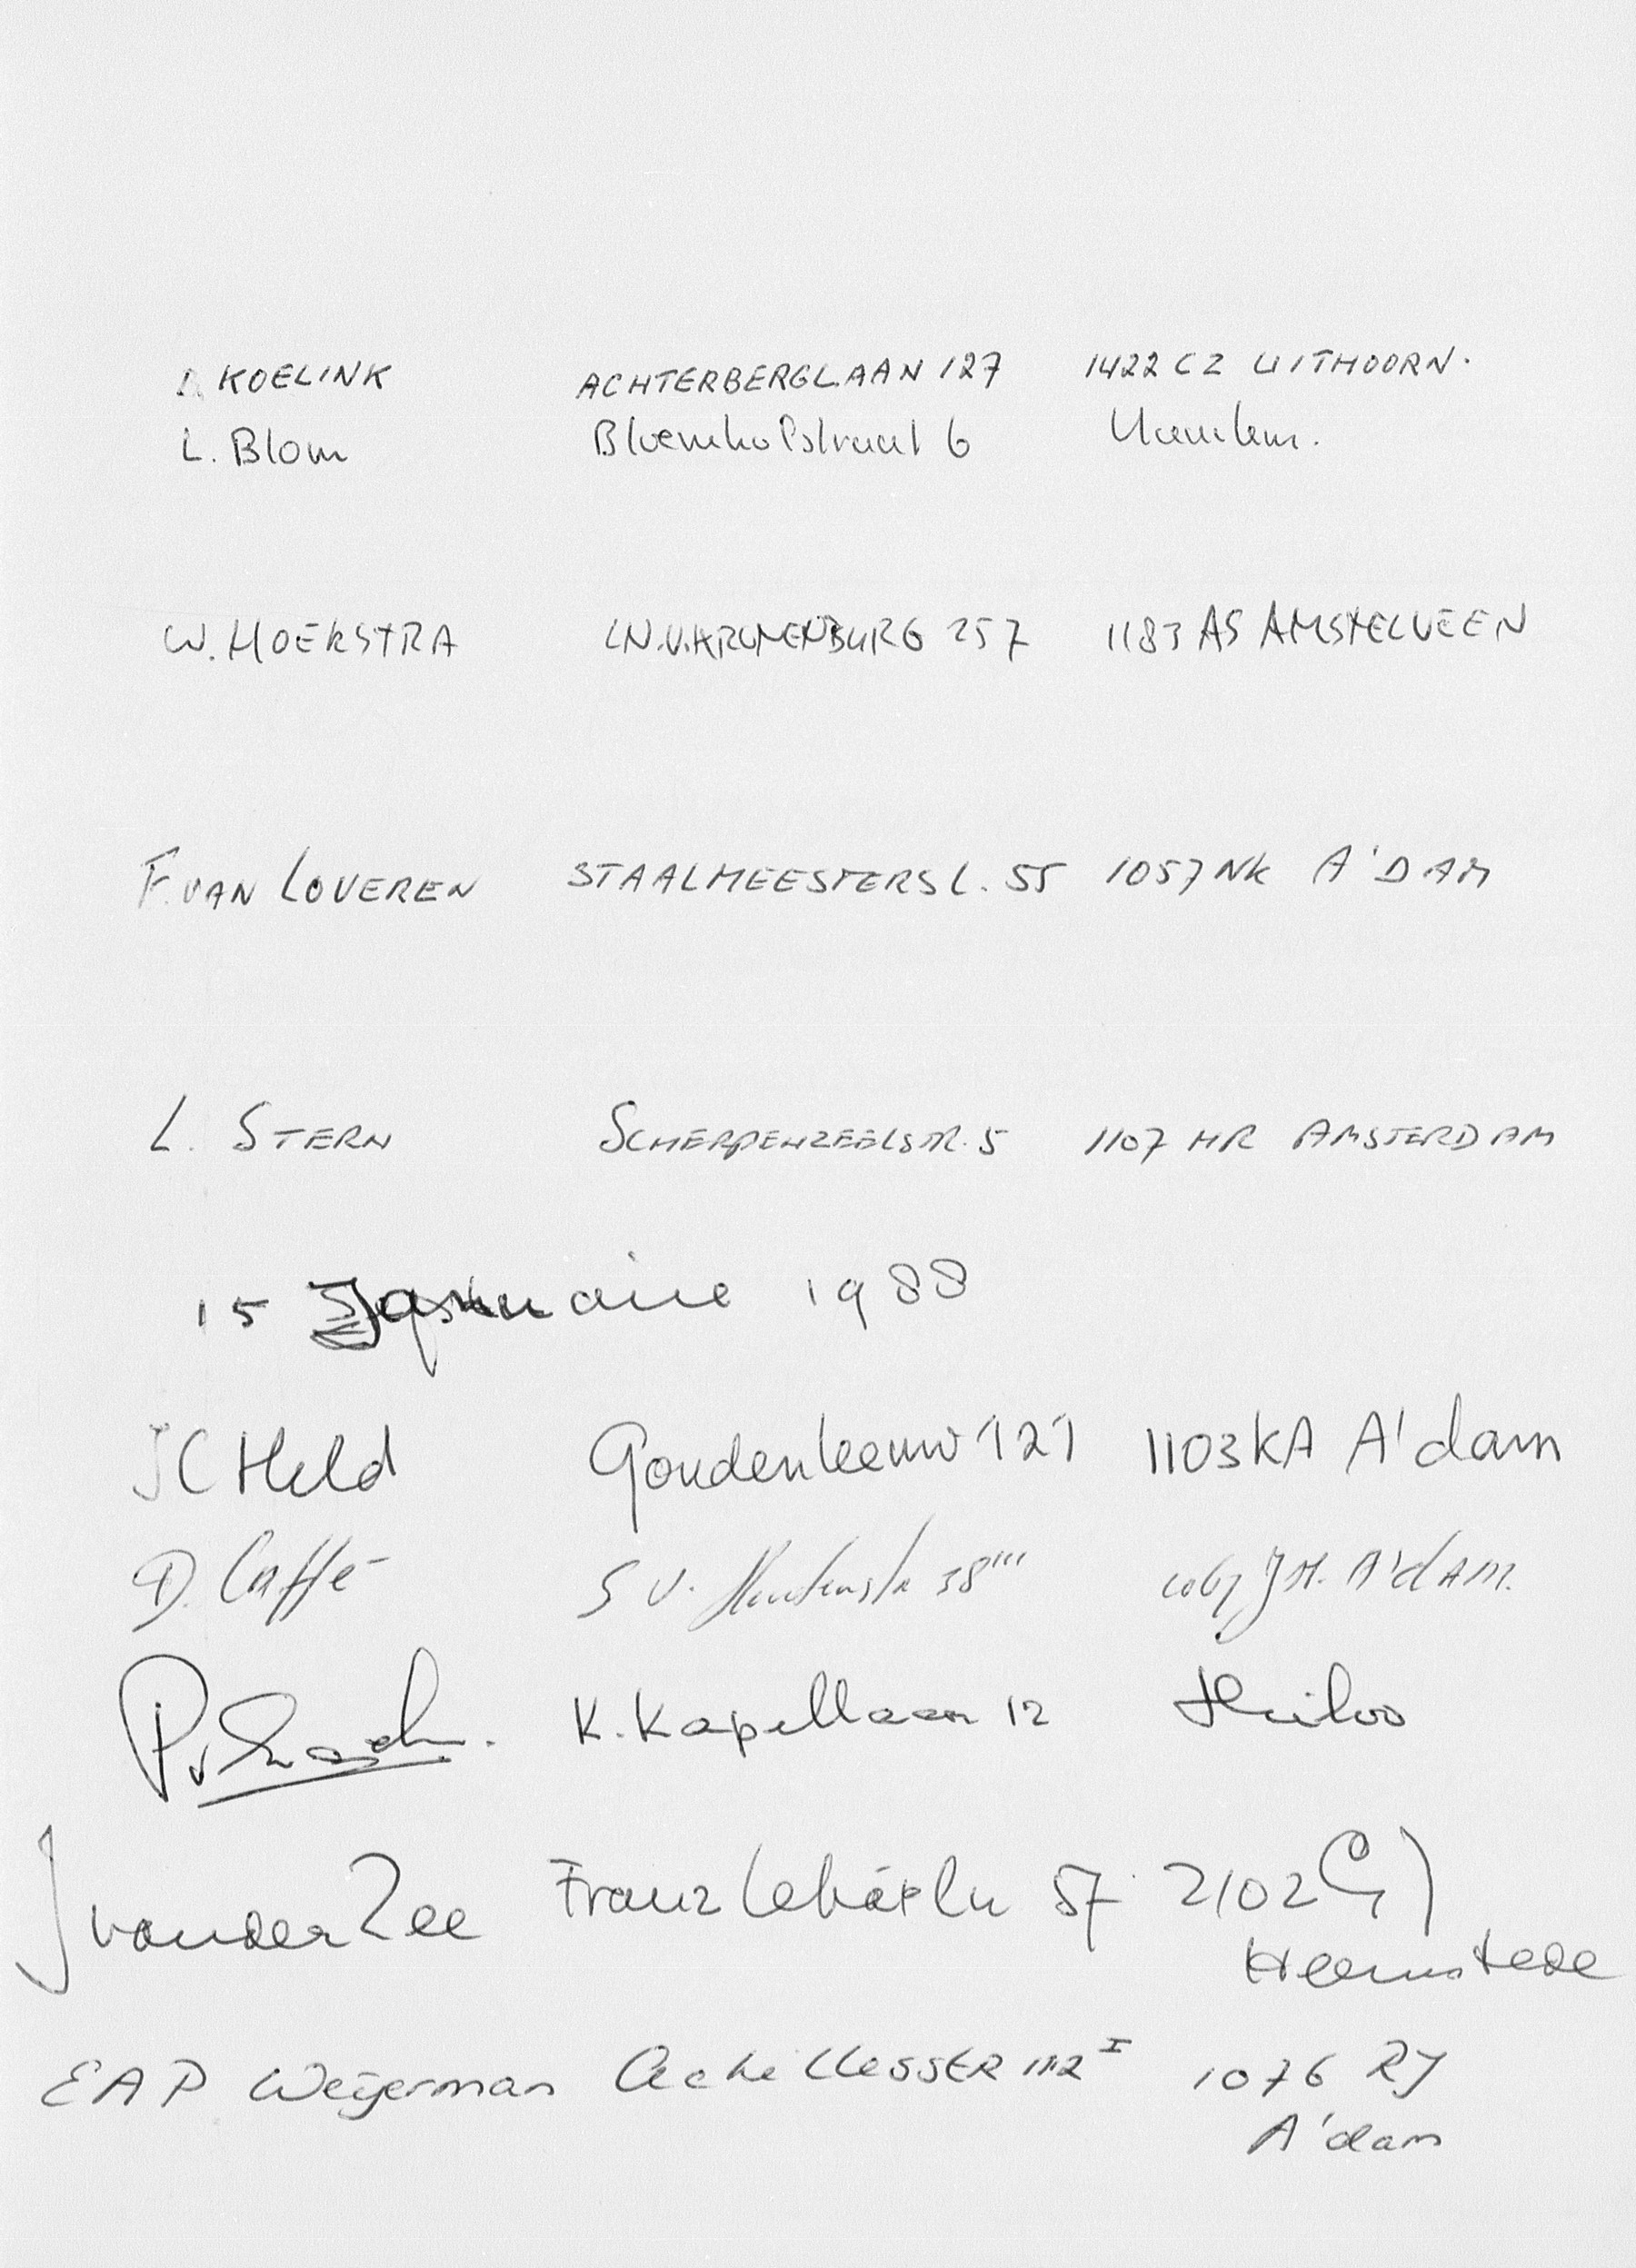 KOELINK ACHTERBERGLAAN 127 1422 CZ UITHOORN.
L. Blom Bloemhofstraat 6 Haarlem.
W. HOEKSTRA LN.V.KRONENBURG 257 1183 AS AMSTELVEEN
F. VAN LOVEREN STAALMEESTERSL. 55 1057 NK A'DAM
L. STERN SCHERPENZEELSTR. 5 1107 HR AMSTERDAM
15 Januarie 1988
JC Held Goudenleeuw 121 1103KA A'dam
D. Caffé S V. 38''' A'dAM.
K. Kapellaan 12 Heiloo
J van der Zee Franz Lehárln 57 2102
Heemstede
EAP Weijerman AchillesstR 112 I 1076 RJ
A'dam